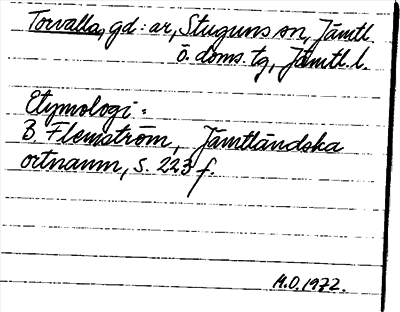 Torvalla, gd:ar, Stuguns sn, Jämtl.
ö. doms. tg, Jämtl. l.
Etymologi:
B Flemström, Jämtländska
ortnamn, s. 223 f.
M.O. 1972.